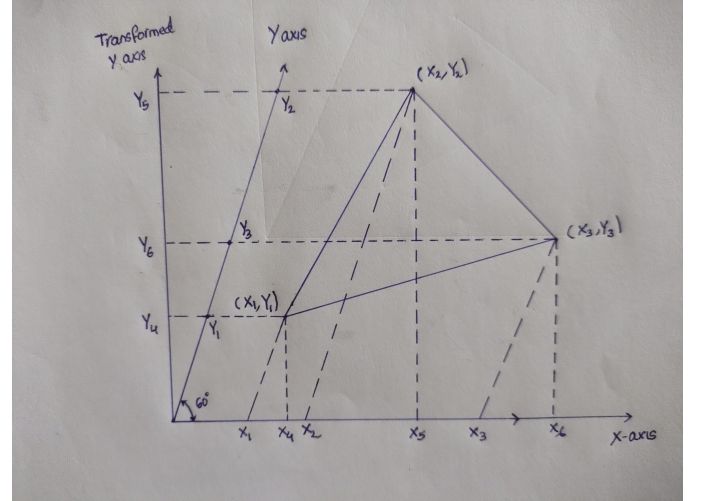 Transformed
Y axis
Y axis
(X₂,Y₂)
Y₅
Y₂
Y₃
(X₃,Y₃)
Y₆
(X₁,Y₁)
Y₄
Y₁
60°
X₁ X₄ X₂ X₅ X₃ X₆
X-axis